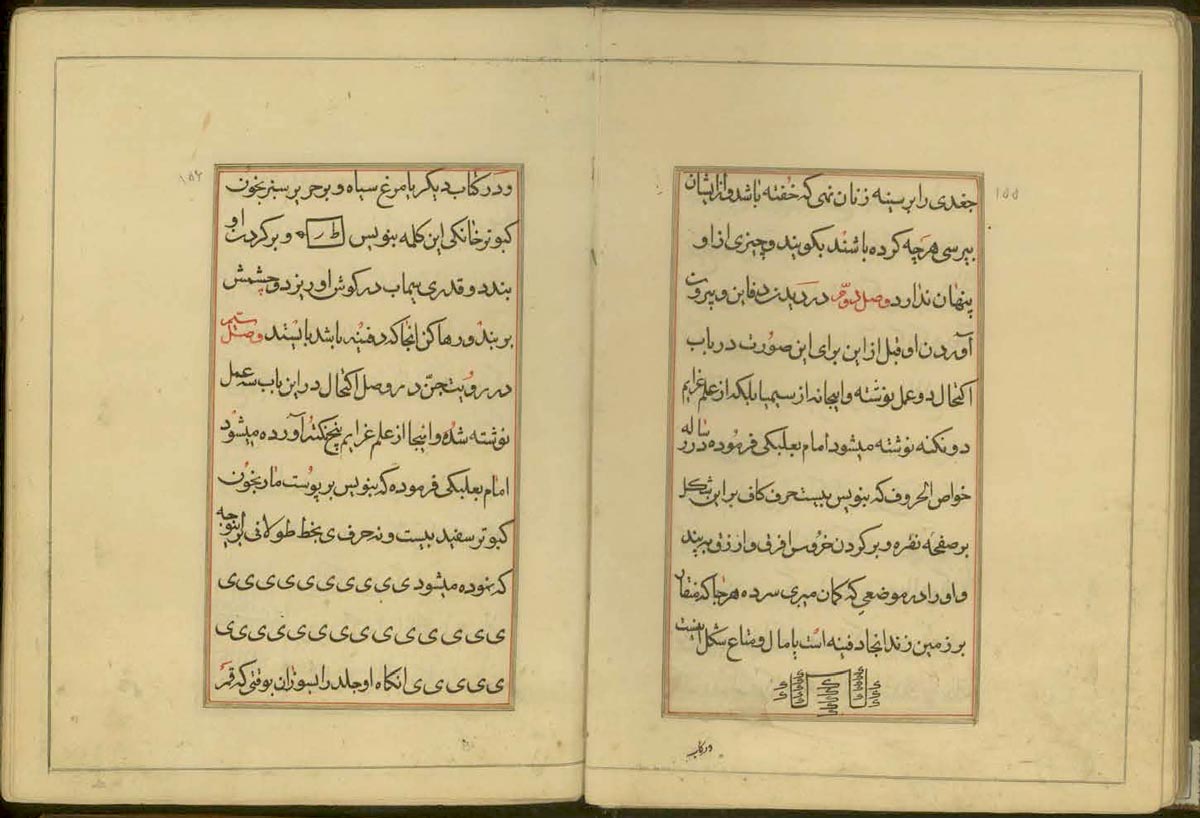 ۱۵۵
جغدی را بر سینه زنان نهی که خفته باشد و از ایشان
بپرسی هرچه کرده باشند بگویند و چیزی از او
پنهان ندارد وصل دوّم در دیدن دفاین و بیرون
آوردن او قبل از این برای این صورت در باب
اکتحال دو عمل نوشته و اینجا نه از سیمیا بلکه از علم غرایم
دو نکته نوشته میشود امام بعلبکی فرموده در رساله
خواص الحروف که بنویس بیست حرف کاف بر این شکل
بر صفحه نقره و بر کردن خروس افرق و ازرق ببند
و او را در موضعی که کمان میبری سر ده هرجا که منقار
بر زمین زند انجا دفینه است یا مال و متاع شکل اینست
در کتاب
۱۵۶
و در کتاب دیگر با مرغ سیاه و بر حریر سبز بخون
کبوتر خانکی این کلمه بنویس و بر کردن او
بندد و قدری سیماب در کوش او ریزد و چشمش
بربندد و رها کن انجا که دفینه باشد بایستد وصل سیّم
در رویت جنّ در وصل اکتحال در این باب سه عمل
نوشته شده و اینجا از علم غرایم پنج نکته آورده میشود
امام بعلبکی فرموده که بنویس بر پوست مار بخون
کبوتر سفید بیست و نه حرف ی بخط طولانی بر اینوجه
که نموده میشود ی ی ی ی ی ی ی ی ی ی
ی ی ی ی ی ی ی ی ی ی ی ی ی
ی ی ی ی ی انکاه او جلد را بسوزان بوقتی که قمر